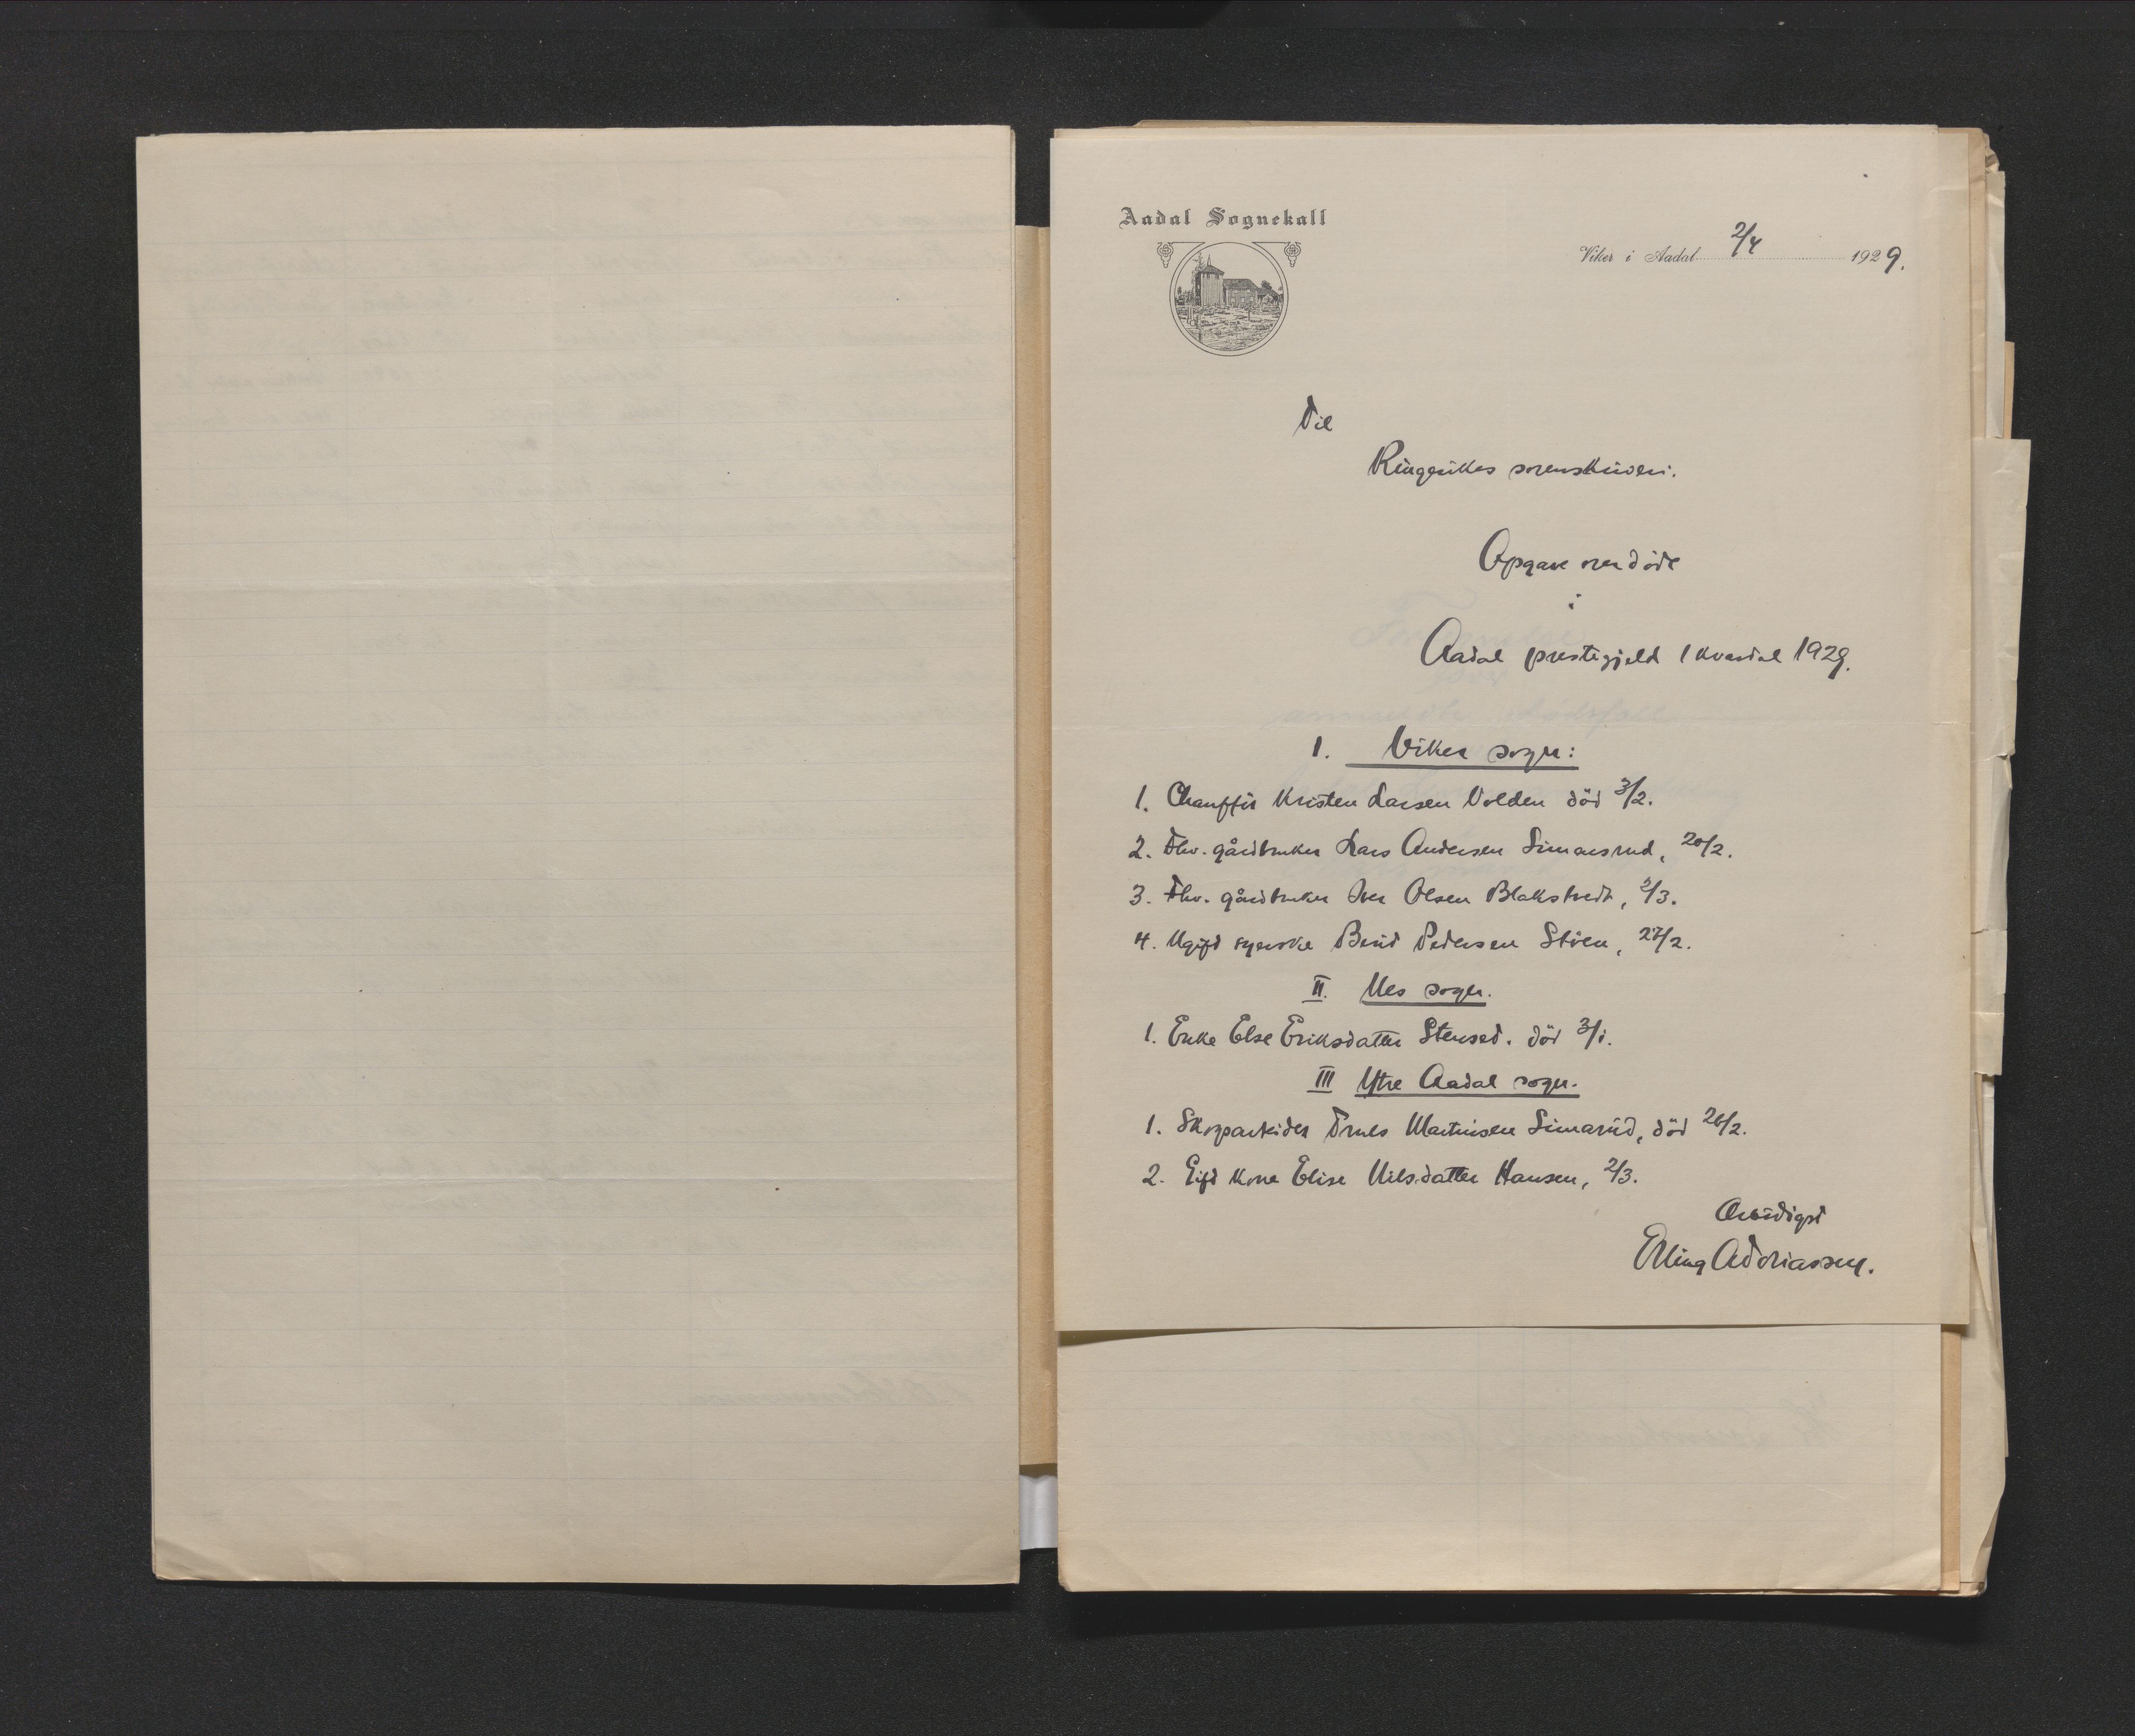 Aadal Sognekall
Viker i Aadal 2/4 1929.
Til
Ringerikes sorenskriveri.
Opgave over döde
i
Aadal prestegjeld 1 kvartal 1929.
1. Viker sogn:
1. Chaufför Kristen Larsen Volden död 3/2.
2. Fhv. gårdbruker Lars Andersen Simensrud, 20/2.
3. Fhv. gårdbruker Iver Olsen Blakstvedt, 2/3.
4. Ugift syerske Berit Pedersen Stöen, 27/2.
II. Nes sogn.
1. Enke Else Eriksdatter Stenset. död 3/1.
III Ytre Aadal sogn.
1. Skogarbeider Truls Martinsen Simarud, död 26/2.
2. Gift kone Elise Nilsdatter Hansen, 2/3.
Ærbödigst
Erling Adriassen.